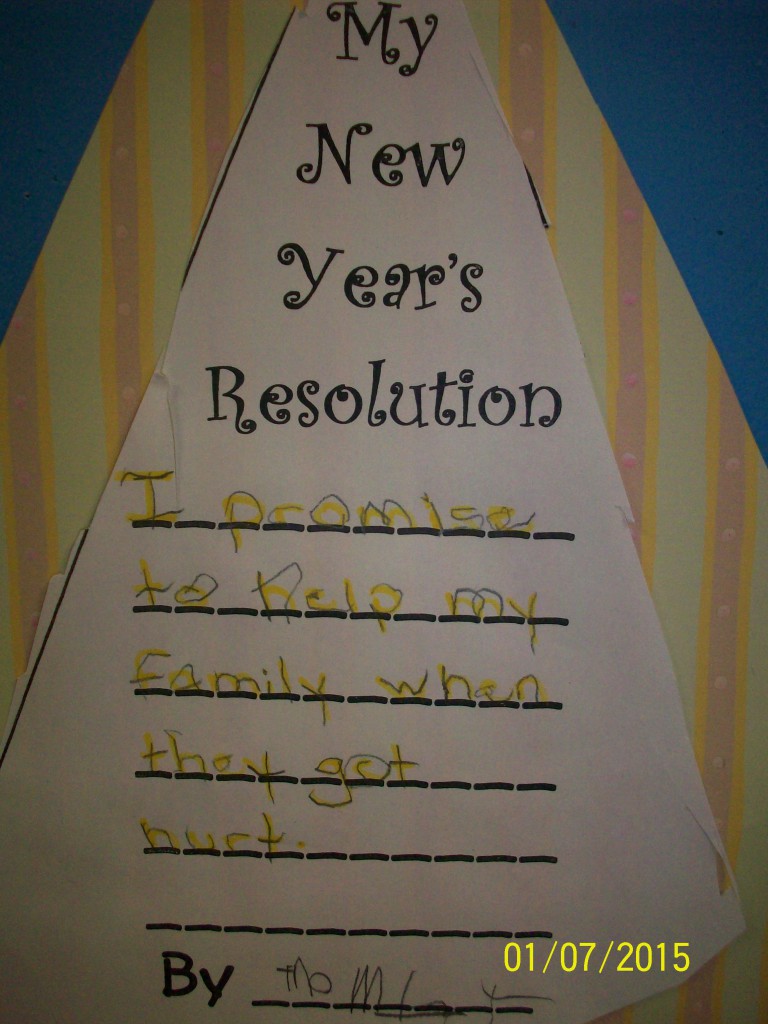 My
New
Year's
Resolution
I promise
to help my
family when
they get
hurt.
By
01/07/2015